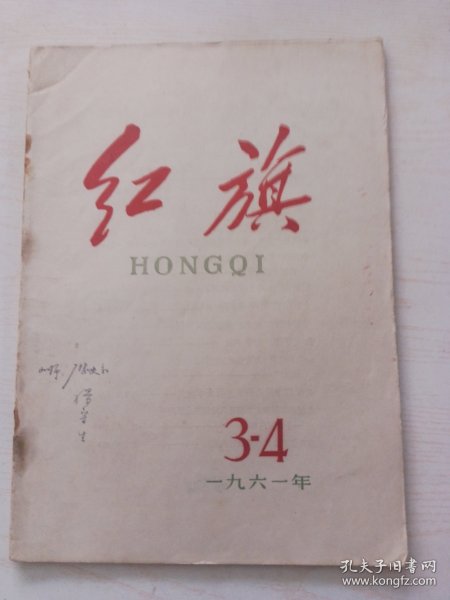 红旗
HONGQI
3-4
一九六一年
孔夫子旧书网
www.kongfz.com